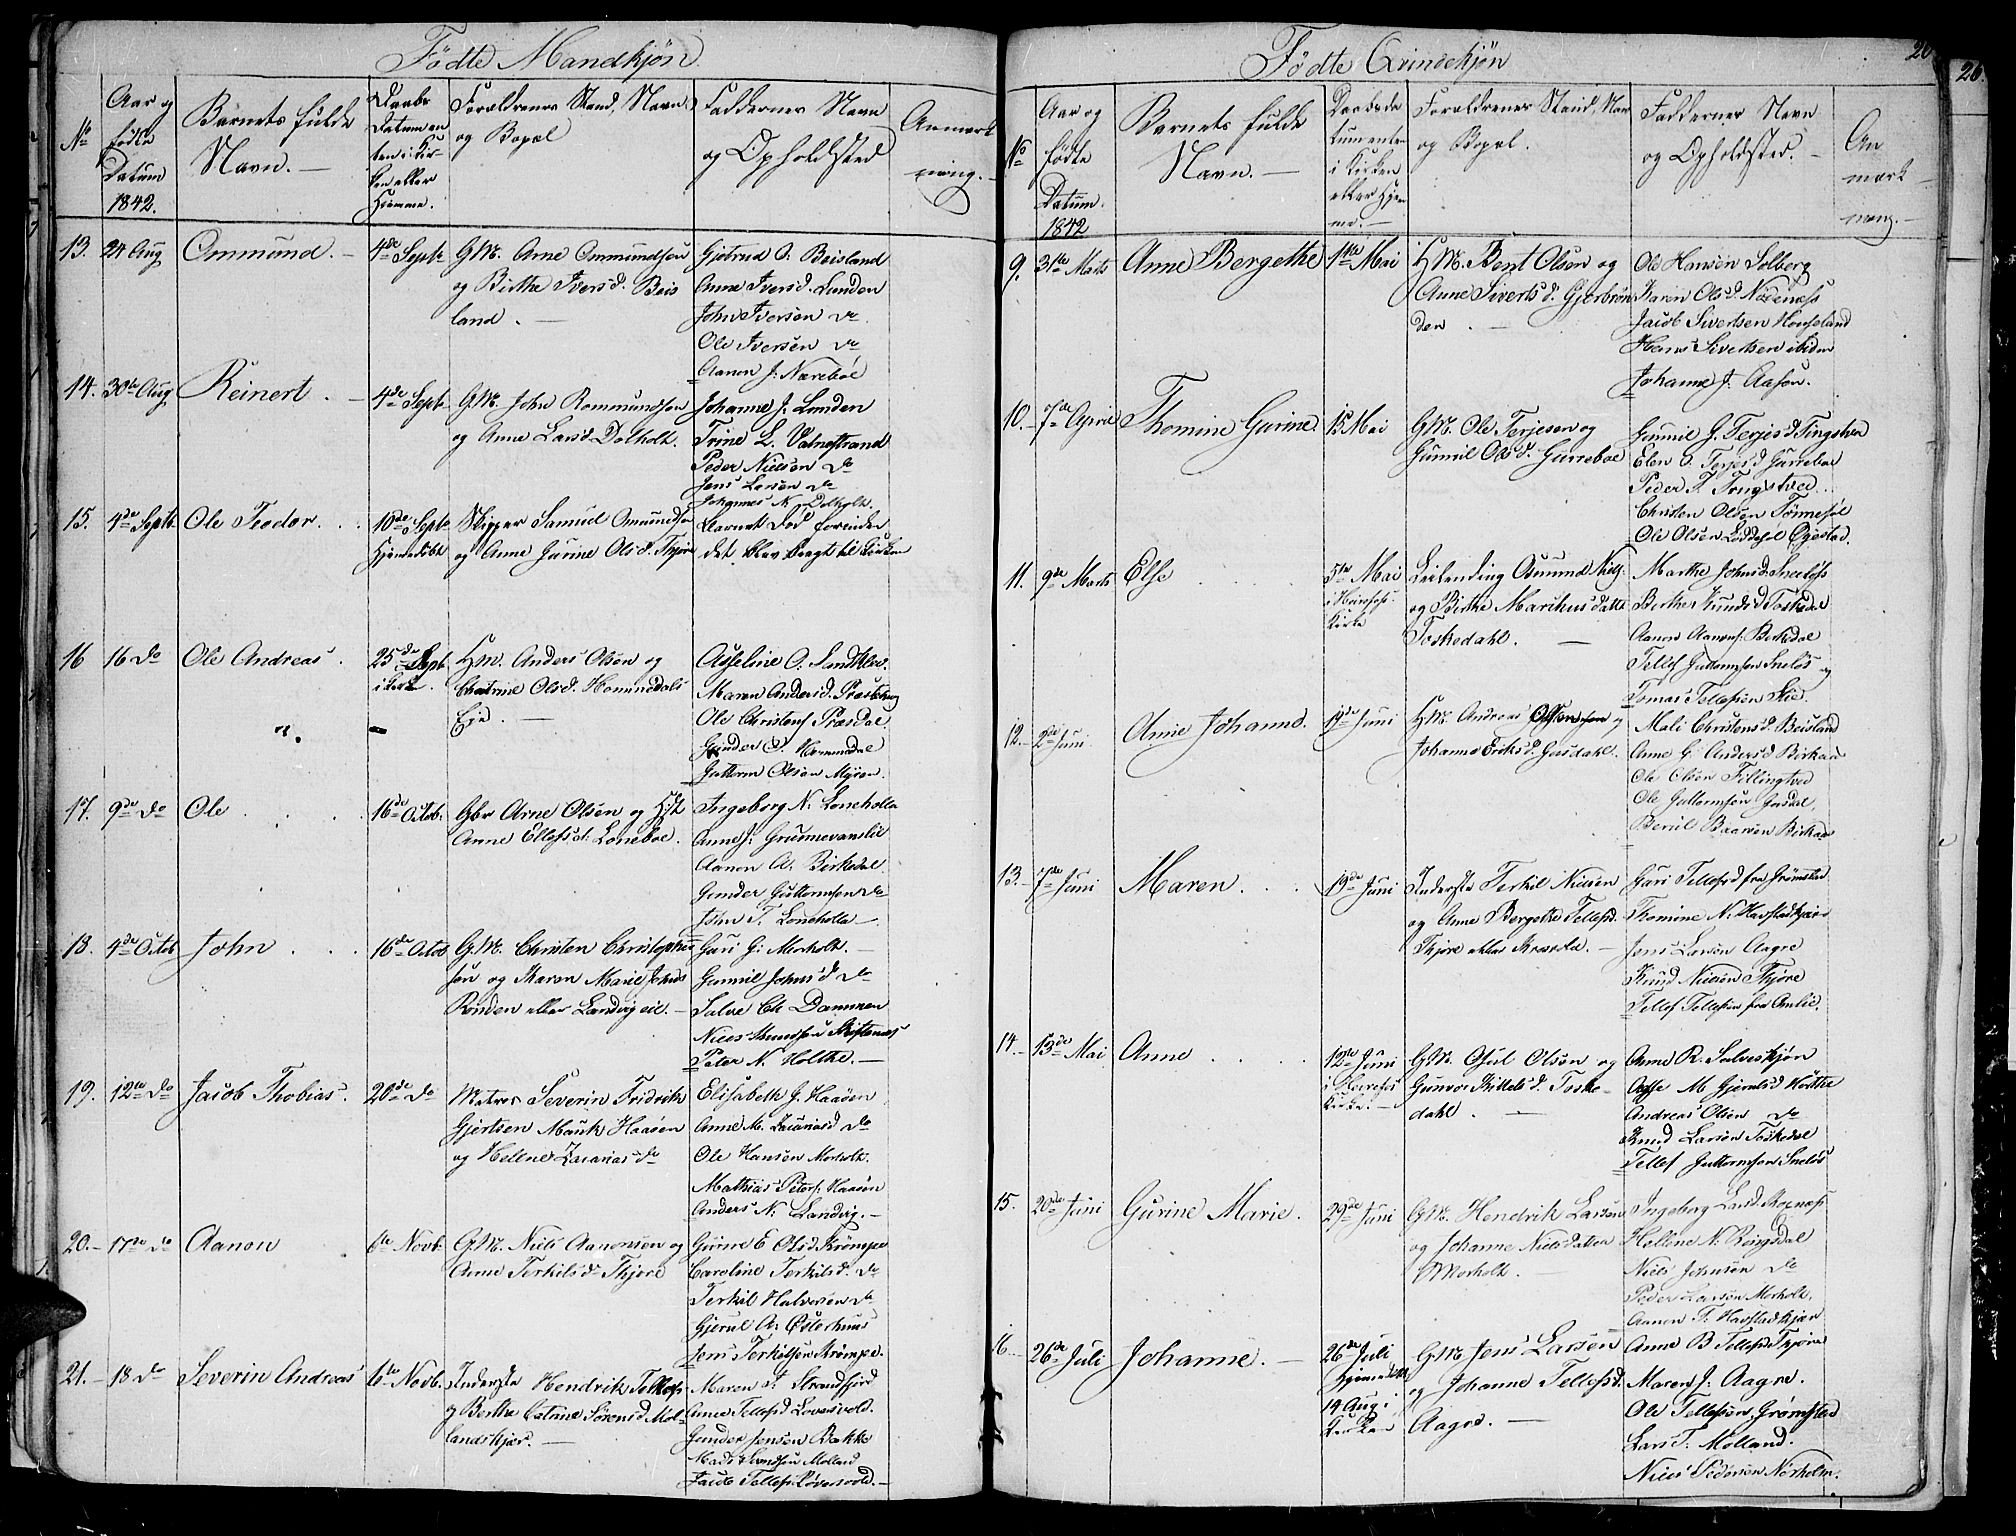 Fødte Mandkjøn
No
Aar og
fødte
Datum
1842.
Barnets fulde
Navn. —
Daabs
Datum en
ten i Kir-
ken eller
Hjemme.
Forældrenes Stand, Navn,
og Bopæl
Faddernes Navn
og Opholdsted
Anmærk
ning. —
13. 24 Aug
Ommund. —
4de Septr
G.M. Arne Ommundsen
og Birthe Iversd. Beis
land. —
Gjetrud O. Beisland
Anne Iversd. Lunden
John Iversen do
Ole Iversen do
Aanon J. Nærebøe
14. 30te Aug
Reinert. —
4de Septr
G.M. John Rommundsen
og Anne Larsd. Dolholt.
Johanne J. Lunden
Trine L. Vatnestrand
Peder Nielsen do
Jens Larsen do
Johannes N. Dolholt.
15. 4de Septr
Ole Teodor. . .
10de Septr
Hjemedøbt
Skipper Samuel Omundsen
og Anne Gurine Olsd. Thjøre
Barnet Død forinden
det blev bragt til Kirken
16 16 do
Ole Andreas.
25de Sept.
i Kirke.
H.M. Anders Olsen og
Chatrine Olsd. Hommedals
Eje. —
Asseline O. Sandklev.
Maren Andersd. Præstehaug
Ole Christens. Præsdal
Gunder O. Hommedal
Guttorm Olsen Myren.
17. 9de do
Ole . . . .
16de Octob.
Gbr Arne Olsen og Hst
Anne Ellefsd. Lonebøe.
Ingeborg N. Loneholla
Anne J. Grunnevanslie
Aanon A. Birkedal
Gunder Guttormsen do
John T. Loneholla —
18. 4de Octob
John . . .
16de Octob
G.M. Christen Christophers
sen og Karen Marie Johns
Rønden eller Landvig eie. —
Guri G. Morholt. —
Gunnil Johnsd. do
Salve Chr Dammen
Niels Knudsen Skiftenes
Peter N. Holthe. —
19. 12te do
Jacob Thobias.
20de do
Matros Severin Fridrik
Gjertsen Mauk Haaøen
og Hellene Zacarias do
Elisabeth G. Haaøen
Anne M. Zacariasd do
Ole Hansen Morholt.
Mathias Peters. Haaøen
Anders N. Landvig. —
20. — 17de do
Aanon
6te Novb.
G.M. Niels Aanonsen og
Anne Terkilsd. Thjøre
Gurine E Olsd. Strømpe
Caroline Terkilsd. do
Terkil Halvorsen do
Gjerul A. Østerhuus
Jens Terkelsen Strømpe.
21. — 18 do
Severin Andreas
6te Novb.
Inderste Hendrik Tellefs-
og Berthe Catrine Sørensd. Mol-
landskjær. —
Maren A. Strandfjord
Anne Tellefsd. Løversvold.
Gunder Jensen Bække
Mads Svendsen Molland
Jacob Tellefs. Løversvold. —
Fødte Qvindekjøn
26
26
No
Aar og
fødte
Datum.
1842
Barnets fulde
Navn. —
Daabsda
tum enten
i Kirken
eller Hjem
me. —
Forældrenes Stand, Navn
og Bopæl.
Faddernes Navn
og Opholdsted. —
An
mærk —
ning. —
9. 31te Marts
Anne Bergethe
1ste Mai
H.M. Bent Olsen og
Anne Sivertsd. Gjerbrøn
den. —
Ole Hansen Solberg
Karen Olsd. Nødenæs
Jacob Sivertsen Honseland
Hans Sivertsen ibiden
Johanne J. Aasen.
10. — 7de April
Thomine Gurine
15 Mai
G.M. Ole Terjesen og
Gunnil Olsd. Gurrebøe
Gunnil G. Terjesd Tingstved
Elen O. Terjesd Gurrebøe
Peder T. Tingstved. .
Christen Olsen Tørnesøl
Ole Olsen Løddesøl Øyestad.
11. 9de Marts
Else . . . .
5te Mai
i Heirefoss
Kirke
Leilending Osmund Niels-
og Birthe Marthus datter
Toskedahl. —
Marthe Johnsd. Sneløfs
Berthe Knudsd. Toskedal
Aanon Aanons. Birkedal
Tellef Guttormsen Sneløs og
Tomas Tellefsen Skie.
12. — 2de Juni
Anne Johanne.
19de Juni
H.M. Andreas Olsen og
Johanne Eriksd. Gusdahl.
Mali Christensd. Beisland
Anne G. Andersd Birkenæs
Ole Olsen Tellingtved
Ole Guttormsen Gusdal.
Berul Baarsen Birkenæs
13. — 7de Juni
Maren. . .
19de Juni
Inderste Terkil Nielsen
og Anne Bergethe Tellefsd.
Thjøre eller Kraasdal. —
Guri Tellefsd fra Grømstad
Thomine N. Havstadkjær
Jens Larsen Aagre
Knud Nielsen Thjøre
Tellef Tellefsen fra Omlie.
14. — 13de Mai
Anne . . . .
12te Juni
i Heirefos
Kirke. —
G.M. Osul Olsen og
Gunvor Kittelsd. Toske-
dahl. —
Anne R. Salveskjøn
Aasse M. Gjemlsd Holthe
Andreas Olsen do
Knud Larsen Toskedal
Tellef Guttormsen Sneløs
15. 20de Juni
Gurine Marie.
29de Juni
G.M. Hendrik Larsen
og Johanne Nielsdatter
Morholt. —
Ingeborg Larsd. Roxnæs
Hellene N. Ringsdal
Niels Johnsen do
Peder Larsen Morholt.
Aanon T. Havstadkjær
16. 26de Juli
Johanne. —
26de Juli
Hjemedøbt
14 Aug i
Kirken
G.M. Jens Larsen
og Johanne Tellefsd.
Aagre. —
Anne B Tellefsd Thjøre
Maren J. Aagre.
Ole Tellefsen Grømstad
Lars T. Molland.
Niels Pedersen Nørholm.